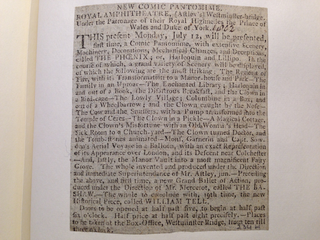 NEW COMIC PANTOMIME.
ROYAL AMPHITHEATRE, (Astley's) Westminster-bridge.
Under the Patronage of their Royal Highnesses the Prince of
Wales and Duke of York. 1802
THIS present Monday, July 12, will be presented,
first time, a Comic Pantomime, with extensive Scenery,
Machinery, Decorations, Mechanical Changes, and Deceptions,
called THE PHŒNIX; or, Harlequin and Lillipo. In the
course of which, a grand Variety of Scenery will be displayed,
of which the following are the most striking: The Regions of
Fire, with its Transformation to a Manor-house and Park—The
Family in an Uproar—The Enchanted Library; Harlequin in
and out of a Book, the Disastrous Breakfast, and the Clown in
a Bird-cage—The Lonely Village; Columbine in a Box, and
out of a Wheelbarrow; and the Clown caught by the Nose—
The Cot and the Scullers, with a Pump transformed into the
Temple of Ceres—The Clown in a Pickle—A Magical Cottage,
and the Clown's Misfortune with an Old Woman's Head—The
Sick Rooks to a Church-yard—The Clown turned Doctor, and
the Tomb-stones animated—Mons. Garnerin and Capt. Sow-
don's Aerial Voyage in a Balloon, with an exact Representation
of its Appearance over London, and its Descent near Colchester
—And, lastly, the Manor Vault into a most magnificent Fairy
Grove. The whole invented and produced under the Direction
and immediate Superintendance of Mr. Astley, jun.—Preceding
the above, and first time, a new Grand Ballet of Action, pro-
duced under the Direction of Mr. Mercerot, called THE BA-
SHAW.—The whole to conclude with, 19th time, the new
Historical Piece, called WILLIAM TELL.
Doors to be opened at half past five, to begin at half past
six o'clock. Half price at half past eight precisely.—Places
to be taken at the Box-Office, Westminster Bridge, from ten till